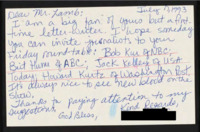 Dear Mr. Lamb: July 7, 1993
I am a big fan of yours but a first
time letter-writer. I hope someday
you can invite journalists to your
Friday roundtable: Bob Kur of NBC,
Brit Hume of ABC, Jack Kelley of USA
Today, Howard Kurtz of Washington Post.
It's always nice to see new blood on the
show.
Thanks for paying attention to my
suggestions. Kind Regards,
God Bless,